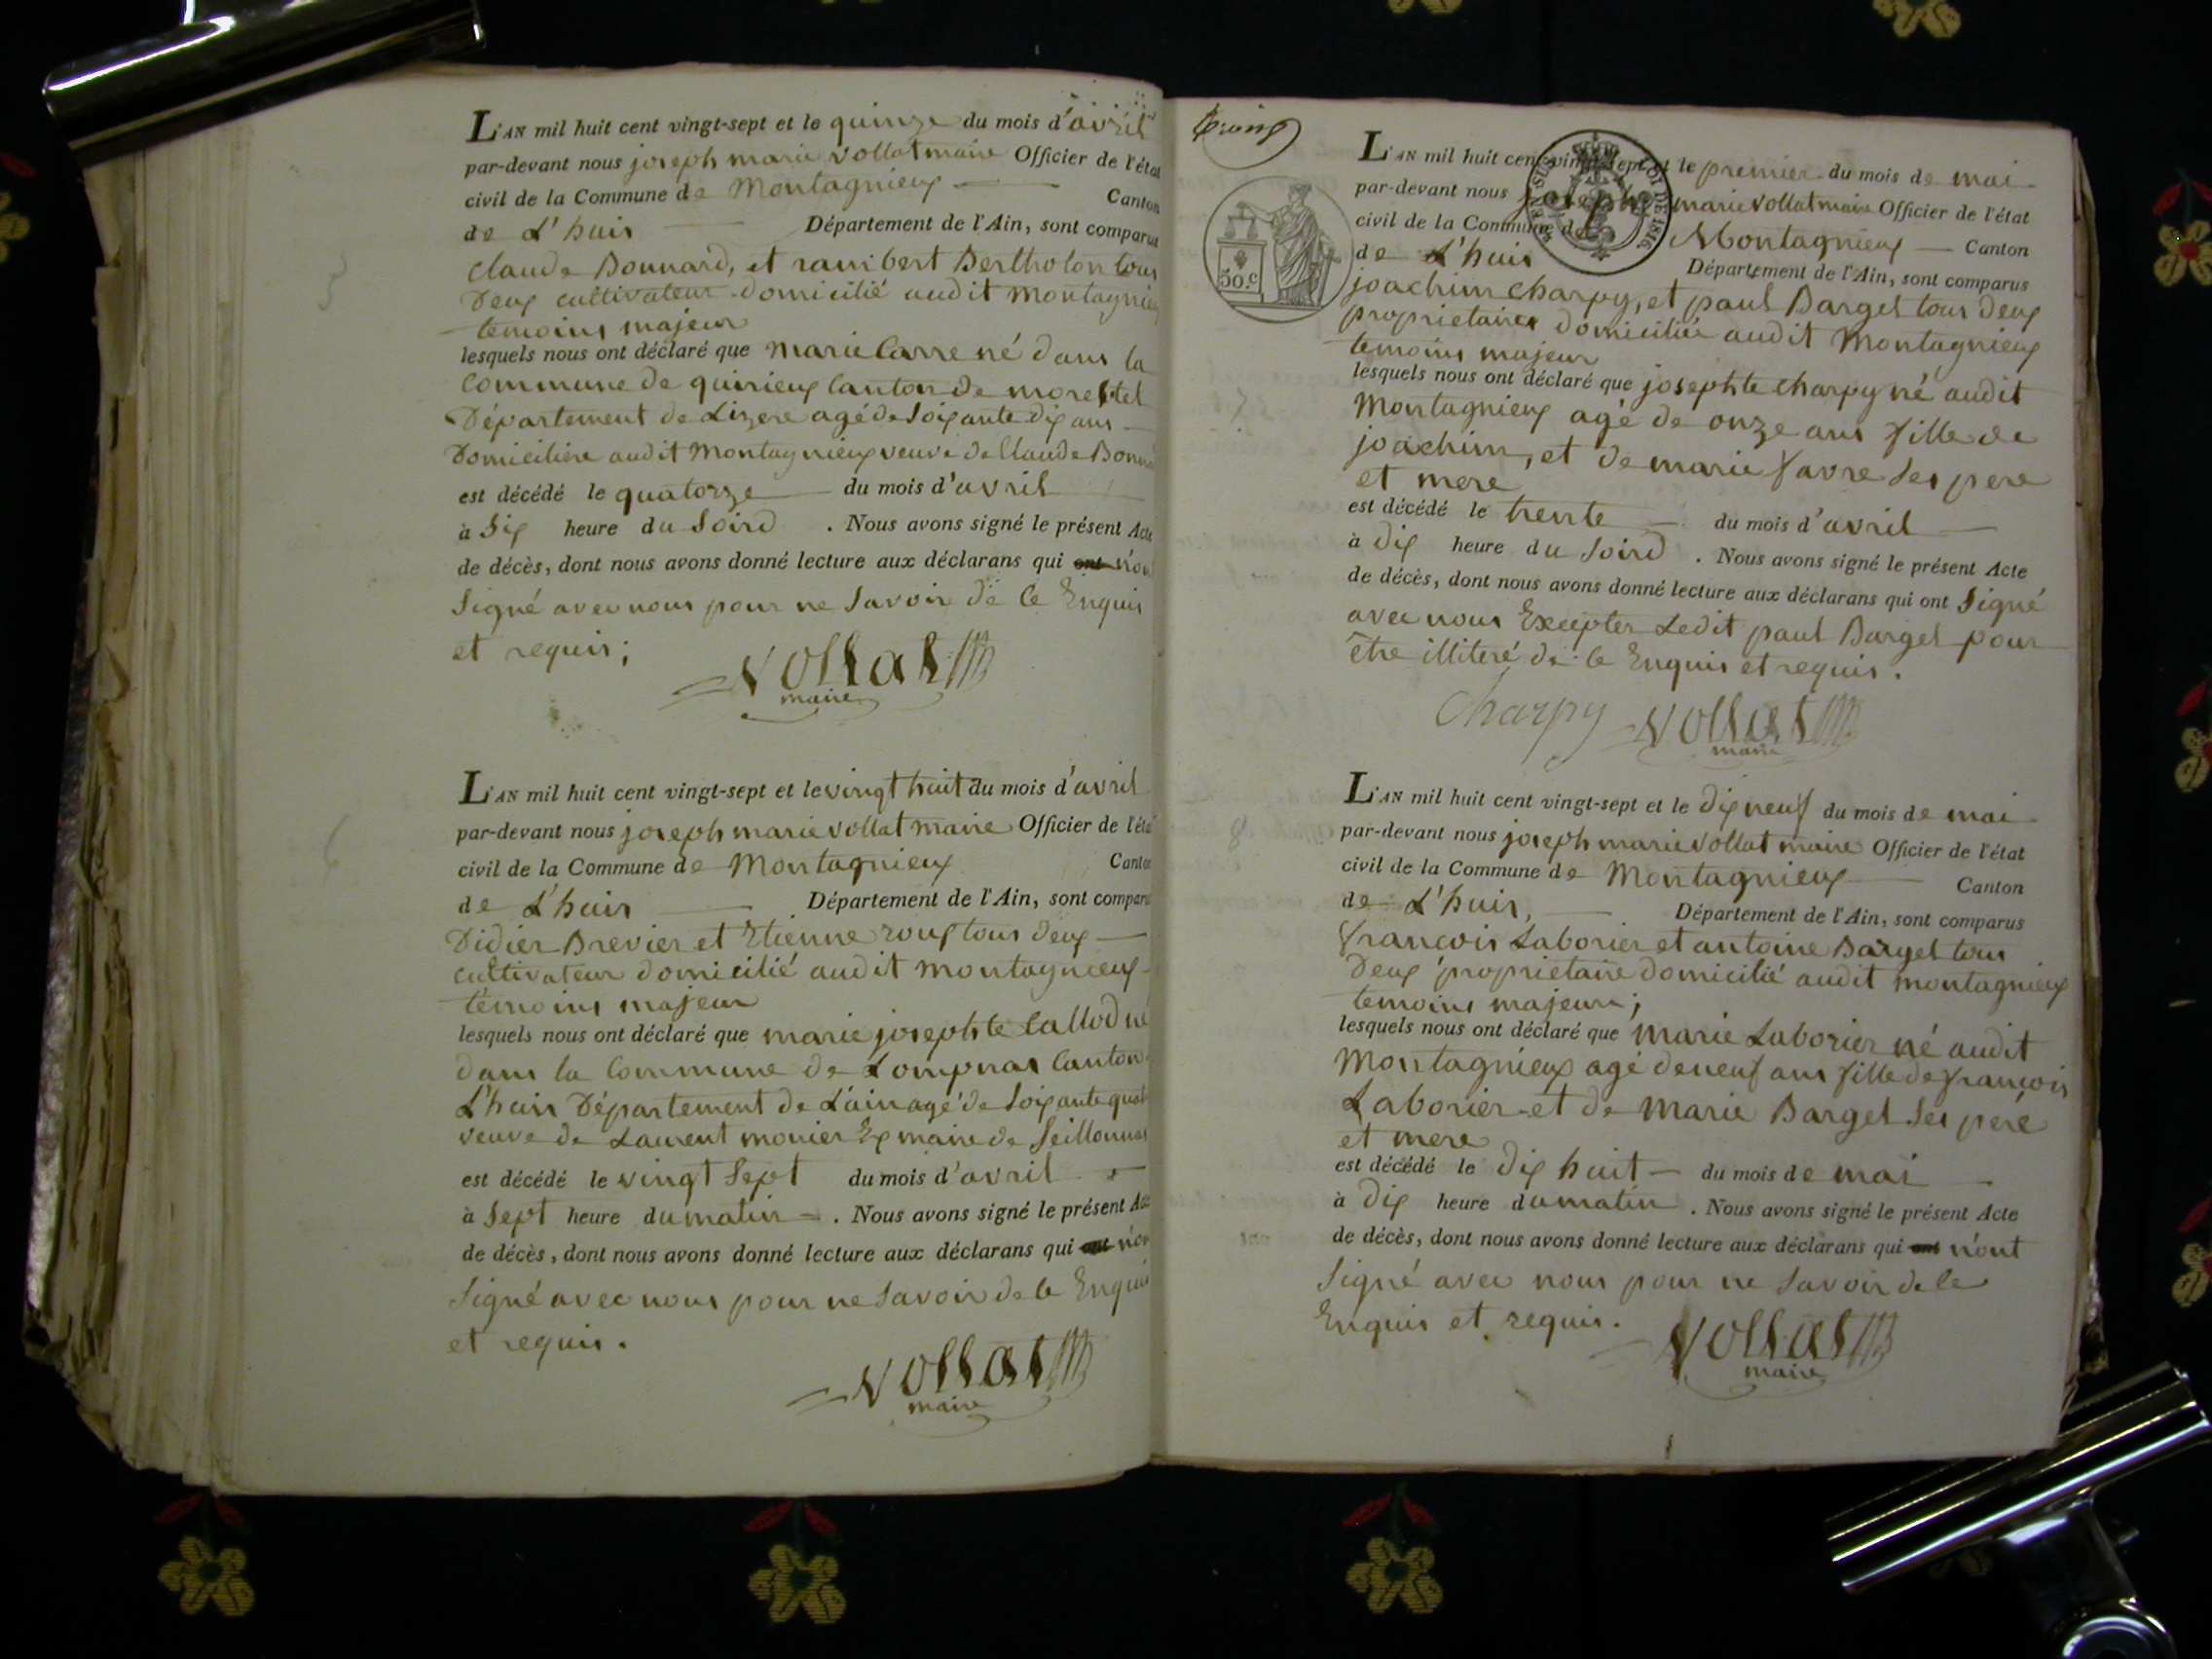 5
L'AN mil huit cent vingt-sept et le quinze du mois d'avril
par-devant nous joseph marie vollat maire Officier de l'état
civil de la Commune de Montagnieux Canton
de L'huis Département de l'Ain, sont comparus
Claude Bonnard, et rambert Bertholon tous
Deux cultivateur domicilié audit Montagnieux
temoins majeur
lesquels nous ont déclaré que marie Carre né dans la
commune de quirieux Canton de morestel
Département de Lizere agé de soixante dix ans
Domicilière audit Montagnieux veuve de Claude Bonna
est décédé le quatorze du mois d'avril
à six heure du soird . Nous avons signé le présent Acte
de décès, dont nous avons donné lecture aux déclarans qui ont n'ont
signé avec nous pour ne savoir de ce Enquis
et requis;
vollat
maire
6
L'AN mil huit cent vingt-sept et le vingt huit du mois d'avril
par-devant nous joseph marie vollat maire Officier de l'éta
civil de la Commune de Montagnieux Canton
de L'huis Département de l'Ain, sont comparu
Didier Brevier et Etienne roux tous deux
cultivateur domicilié audit montagnieux
témoins majeur
lesquels nous ont déclaré que marie josephte Callod né
dans la Commune de Lompnas Canton
L'huis Département de L'ain agé de soixante quat
veuve de Laurent monier Ex maire de Seillonnas
est décédé le vingt sept du mois d'avril
à sept heure du matin . Nous avons signé le présent Ac
de décès, dont nous avons donné lecture aux déclarans qui ont n'on
signé avec nous pour ne savoir de ce Enquis
et requis.
vollat
maire
50.c
L'AN mil huit cent vingt-sept et le premier du mois de mai
par-devant nous joseph marie vollat maire Officier de l'état
civil de la Commune de Montagnieux Canton
de L'huis Département de l'Ain, sont comparus
joachim charpy, et paul Barget tous deux
proprietaires domiciliés audit Montagnieux
temoins majeur
lesquels nous ont déclaré que josephte charpy né audit
Montagnieux agé de onze ans fille de
joachim, et de marie favre ses pere
et mere
est décédé le trente du mois d'avril
à dix heure du soird . Nous avons signé le présent Acte
de décès, dont nous avons donné lecture aux déclarans qui ont signé
avec nous Excepter Ledit paul Barget pour
être illiteré de ce Enquis et requis.
Charpy vollat
maire
8
L'AN mil huit cent vingt-sept et le dix neuf du mois de mai
par-devant nous joseph marie vollat maire Officier de l'état
civil de la Commune de Montagnieux Canton
de L'huis, Département de l'Ain, sont comparus
françois Laborier et antoine Barget tous
deux proprietaire domicilié audit montagnieux
temoins majeurs;
lesquels nous ont déclaré que marie Laborier né audit
Montagnieux agé de neuf ans fille de françois
Laborier et de Marie Barget ses pere
et mere
est décédé le dix huit du mois de mai
à dix heure du matin . Nous avons signé le présent Acte
de décès, dont nous avons donné lecture aux déclarans qui ont n'ont
signé avec nous pour ne savoir de ce
Enquis et requis.
vollat
maire